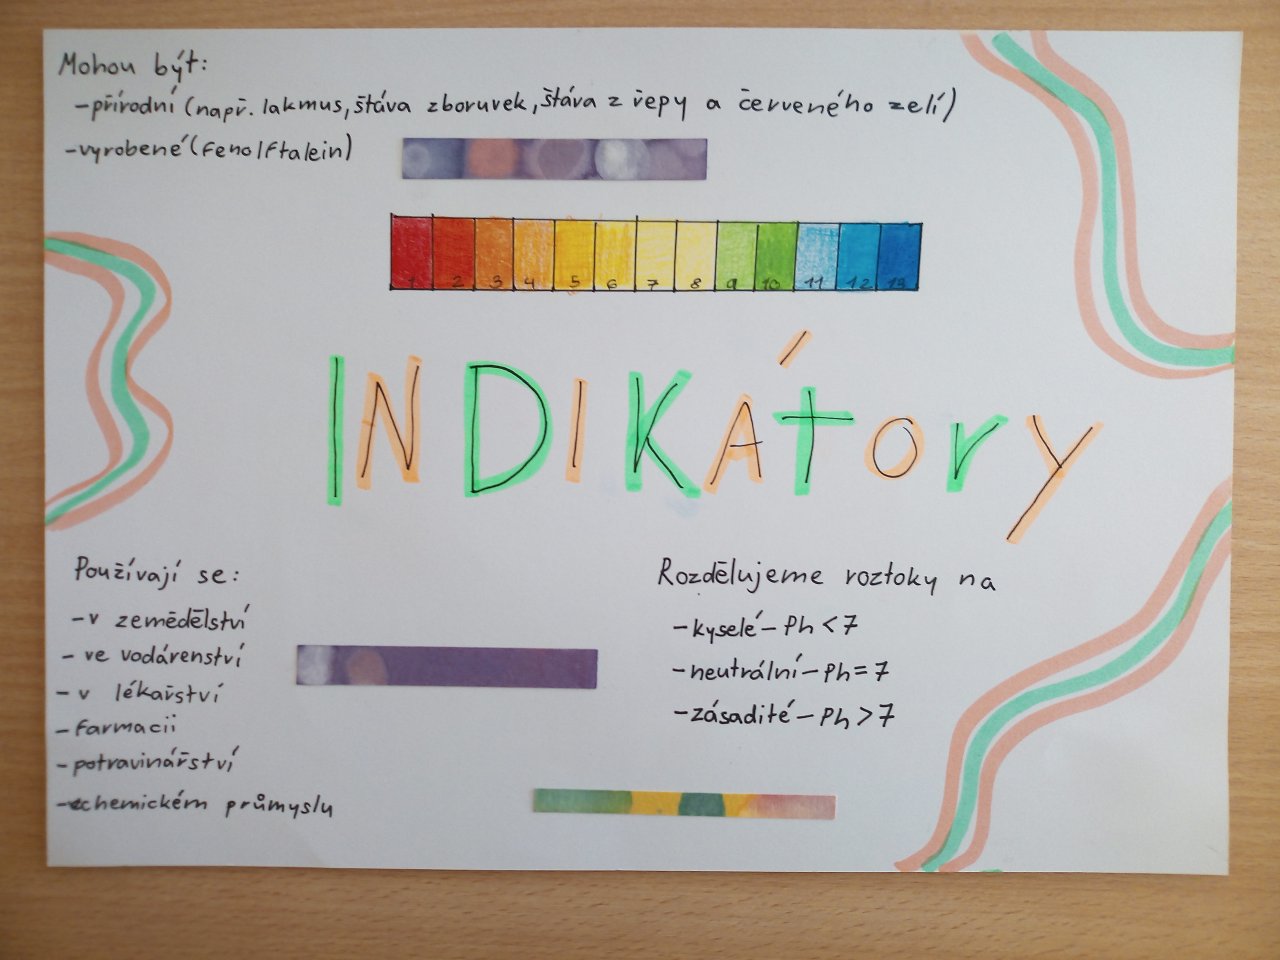 Mohou být:
-přírodní (např. lakmus, štáva zboruvek, štáva z řepy a červeného zelí)
-vyrobené (Fenolftalein)
1 2 3 4 5 6 7 8 9 10 11 12 13
INDIKÁtory
Používají se:
-v zemědělství
- ve vodárenství
- v lékařství
- farmacii
- potravinářství
-chemickém průmyslu
Rozdělujeme roztoky na
-kyselé-Ph<7
-neutrální-Ph=7
-zásadité-Ph>7